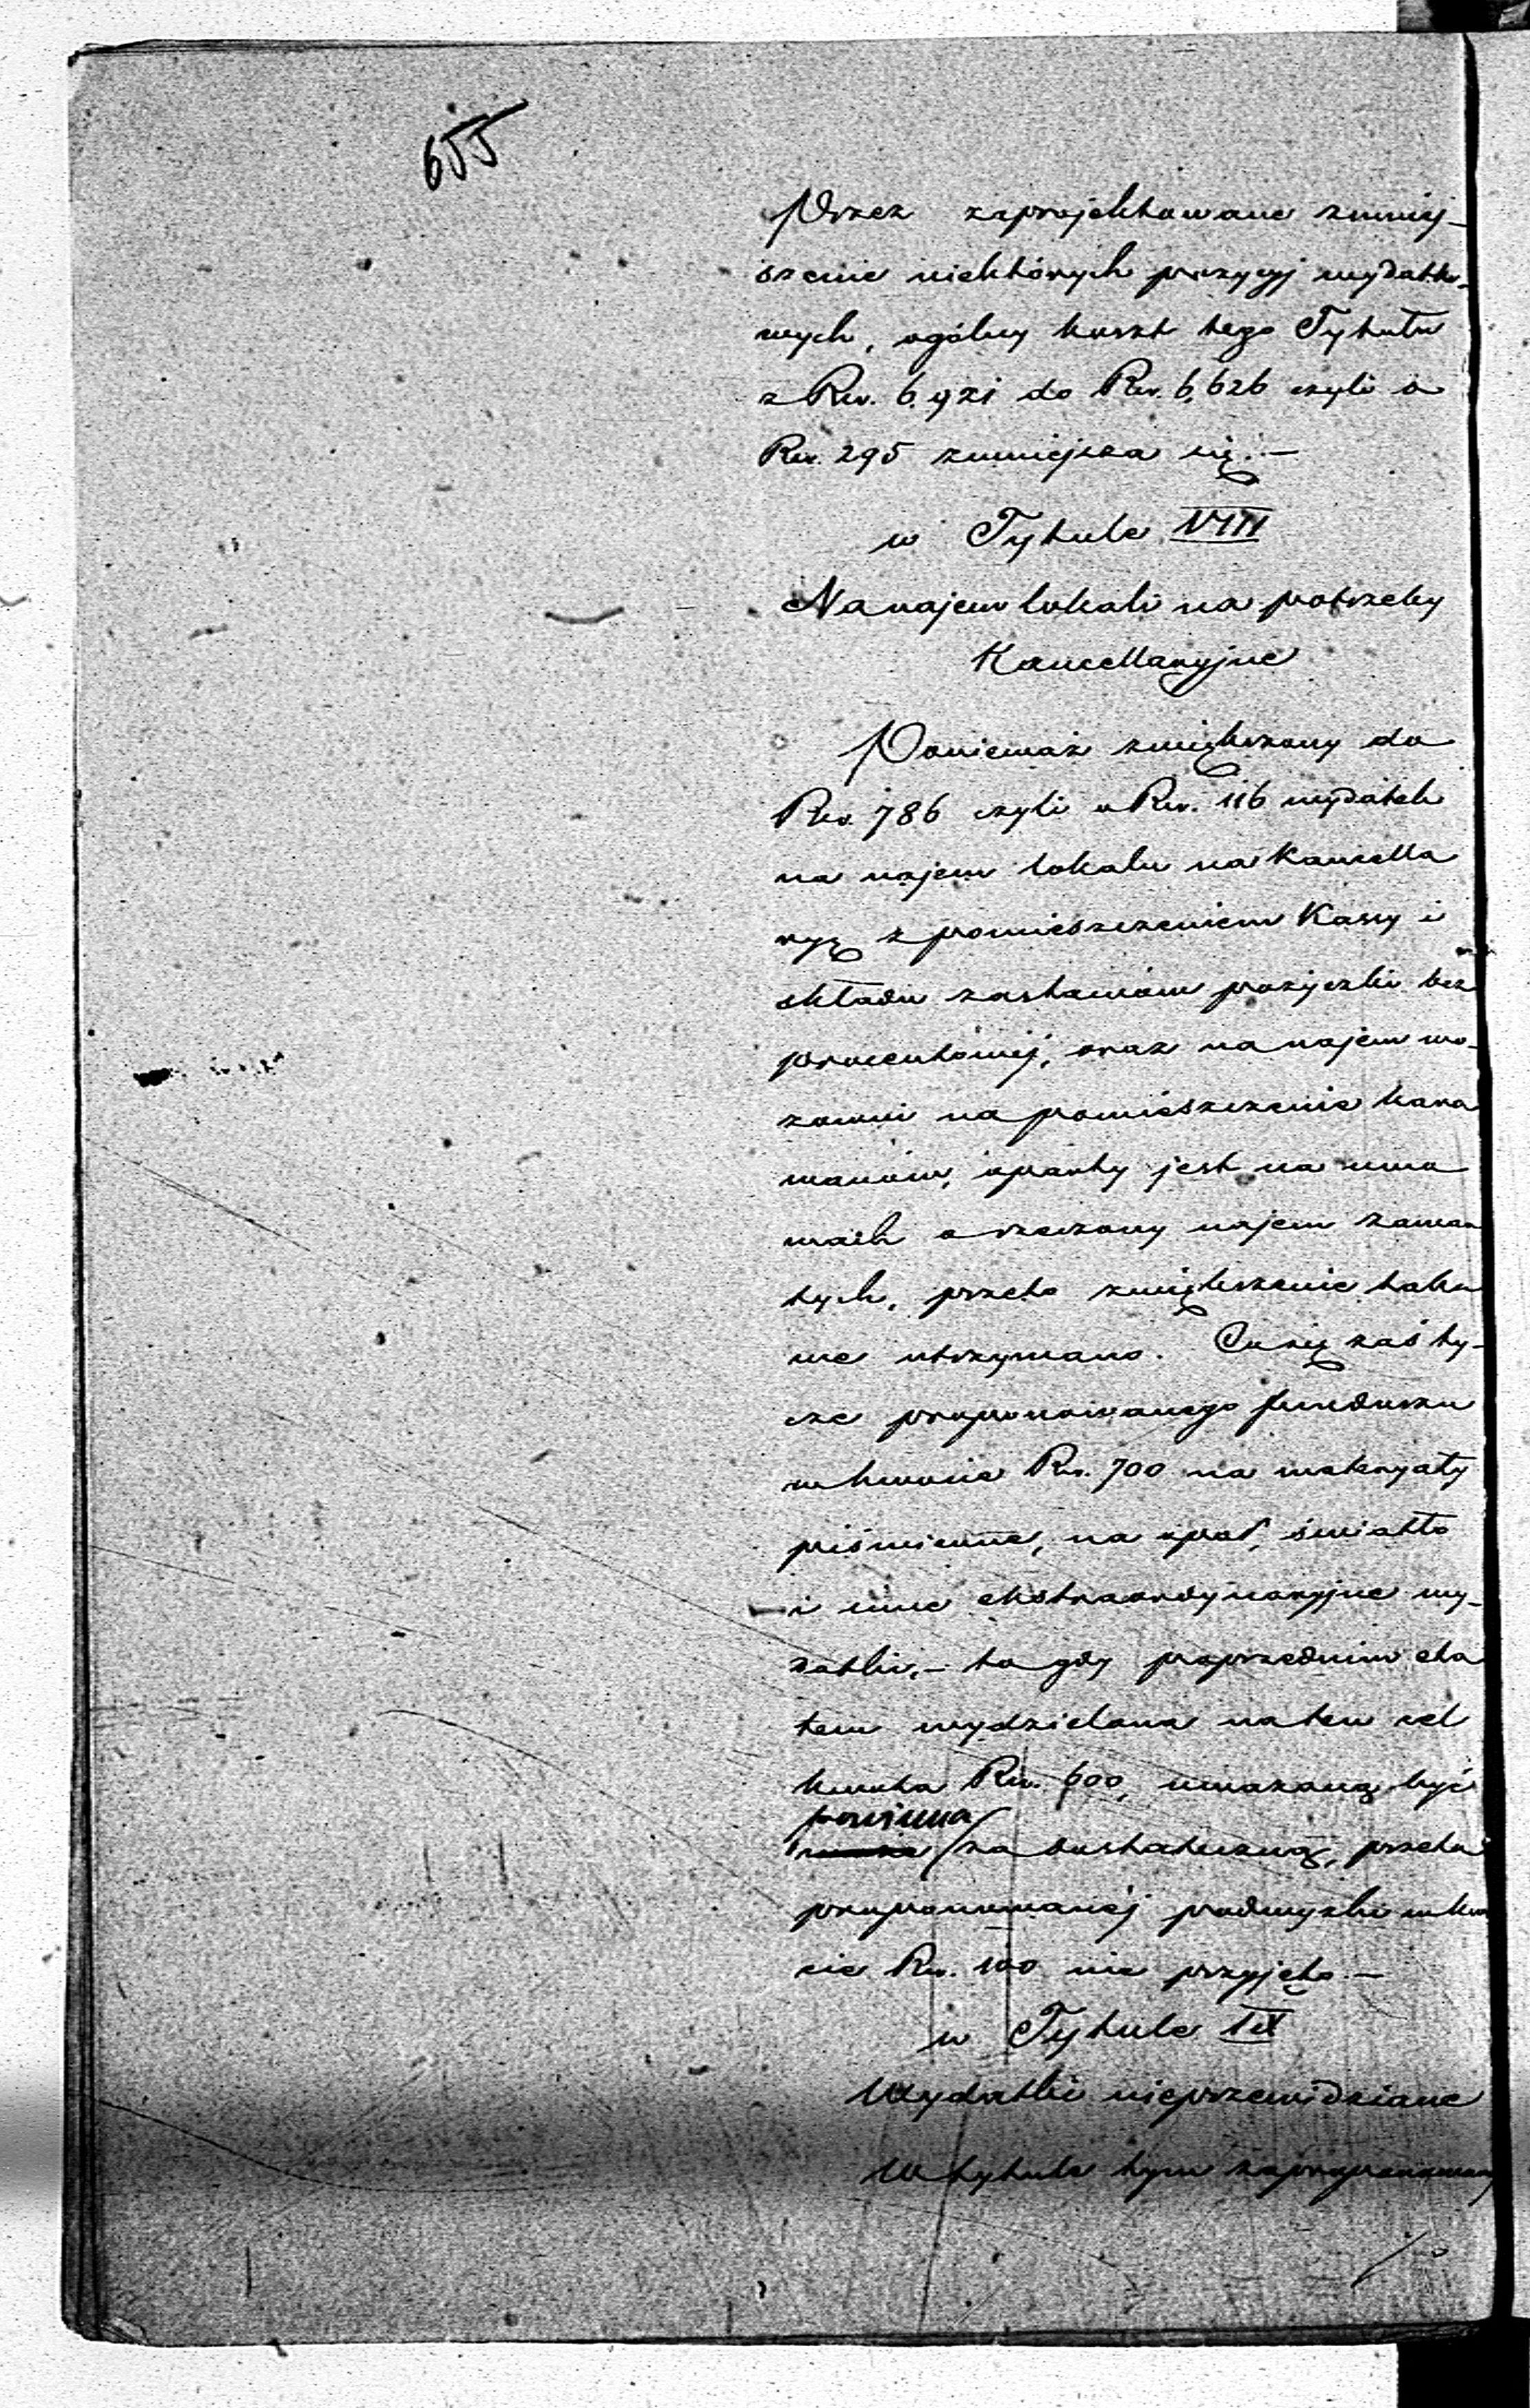 655
Przez zaprojektowane zmniej-
szenie niektórych pozycyj wydatko-
wych, ogólny koszt tego Tytułu
z Rsr. 6,921 do Rsr. 6,626 czyli o
Rsr. 295 zmniejsza się.—
w Tytule VIII
Na najem lokali na potrzeby
Kancellaryjne
Ponieważ zwiększony do
Rsr. 786 czyli o Rsr. 116 wydatek
na najem lokalu na Kancella
ryę z pomieszczeniem Kassy i
składu zastawów pożyczki bez
procentowéj, oraz na najem wo-
zowni na pomieszczenie kara
wanów, oparty jest na umo
wach o rzeczony najem zawar
tych, przeto zwiększenie tako
we utrzymano. Co się zaś ty-
cze proponowanego funduszu
w kwocie Rsr. 700 na materyały
piśmienne, na opał, światło
i inne ekstraordynaryjne wy-
datki,— to gdy poprzednim eta
tem wydzielona na ten cel
kwota Rsr. 600, uważaną być
powinna
za dostateczną, przeto
proponowanéj podwyżki w kwo
cie Rsr. 100 nie przyjęto.—
w Tytule IX
Wydatki nieprzewidziane
W tytule tym zaproponowany